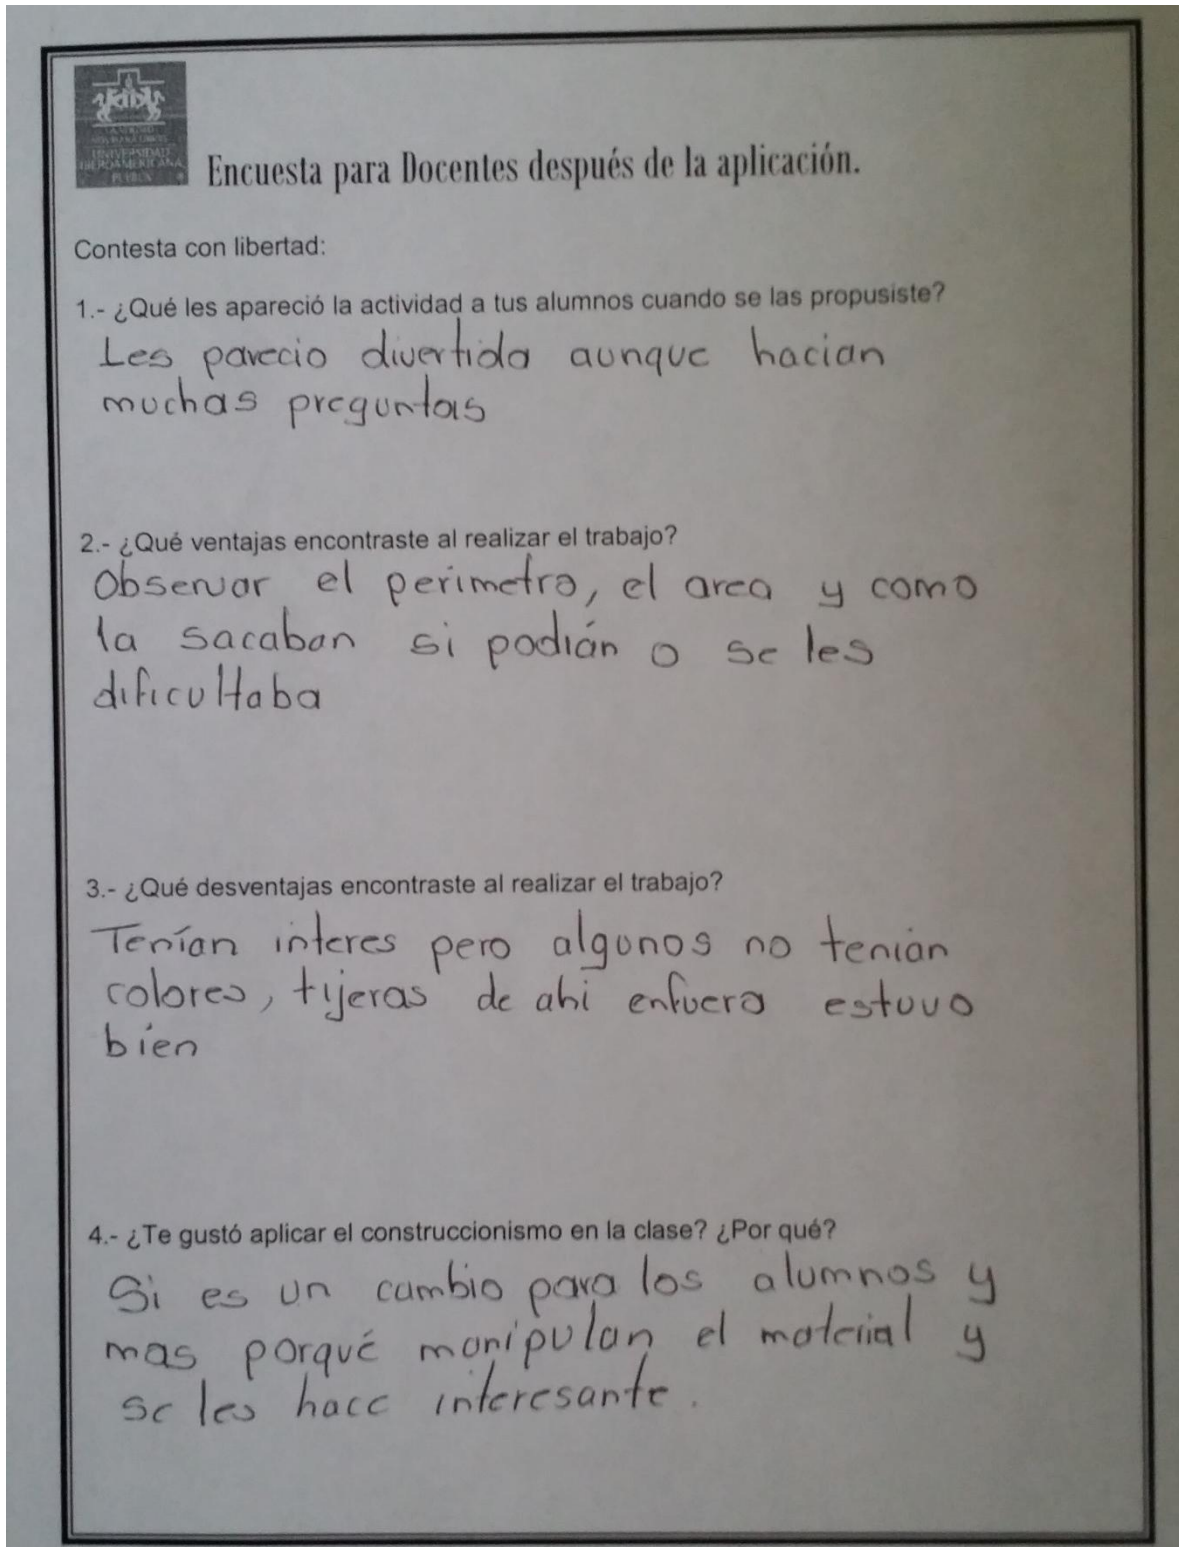 UNIVERSIDAD
IBEROAMERICANA
PUEBLA
Encuesta para Docentes después de la aplicación.
Contesta con libertad:
1.- ¿Qué les apareció la actividad a tus alumnos cuando se las propusiste?
Les parecio divertida aunque hacian
muchas preguntas
2.- ¿Qué ventajas encontraste al realizar el trabajo?
Observar el perimetro, el area y como
la sacaban si podián o se les
dificultaba
3.- ¿Qué desventajas encontraste al realizar el trabajo?
Tenían interes pero algunos no tenián
colores, tijeras de ahi enfuera estuvo
bien
4.- ¿Te gustó aplicar el construccionismo en la clase? ¿Por qué?
Si es un cambio para los alumnos y
mas porqué manipulan el material y
se les hace interesante.